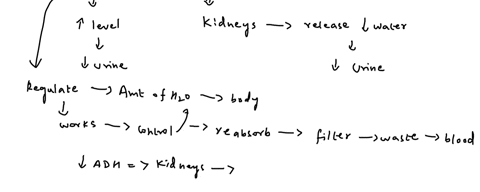 ↑ level    Kidneys → release ↓ water
↓    ↓
↓ urine    ↓ urine
Regulate → Amt of H2O → body
↓
works → control → reabsorb → filter → waste → blood
↓ ADH => Kidneys →